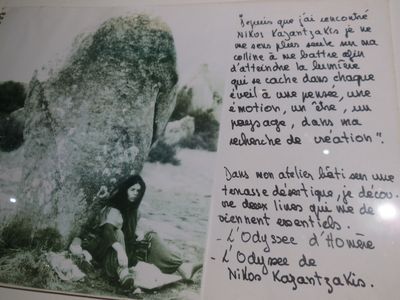 "Depuis que j'ai rencontré
Nikos Kazantzakis je ne
me sens plus seule sur ma
colline à me battre afin
d'atteindre la lumière
qui se cache dans chaque
éveil à une pensée, une
émotion, un être, un
paysage, dans ma
recherche de création".
Dans mon atelier bâti sur une
terrasse désertique, je décou-
vre deux livres qui me de-
viennent essentiels.
- L'Odyssée d'Homère
- L'Odyssée de
Nikos Kazantzakis.